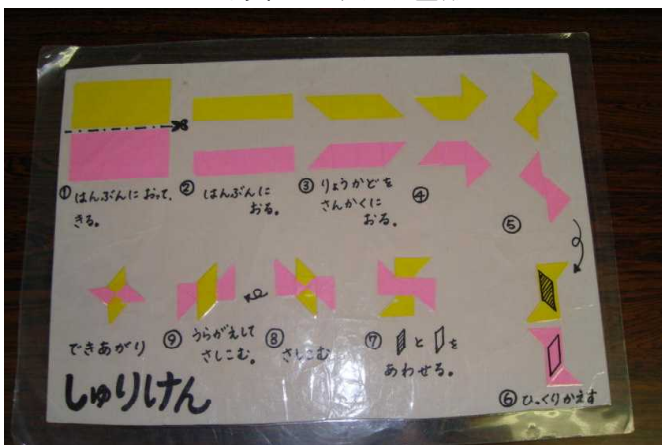 ① はんぶんに おって、
きる。
② はんぶんに
おる。
③ りょうかどを
さんかくに
おる。
④
⑤
⑥ ひっくりかえす
⑦ と を
あわせる。
⑧ さしこむ。
⑨ うらがえして
さしこむ。
できあがり
しゅりけん